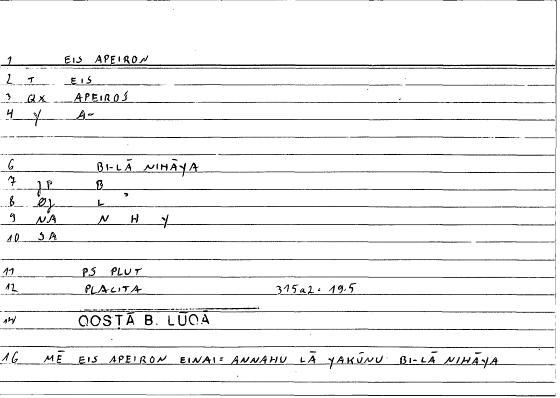 1 EIS APEIRON
2 T EIS
3 QX APEIROS
4 Y A-
6 BI-LĀ NIHĀYA
7 JP B
8 ØJ L
9 NA N H Y
10 SA
11 PS PLUT
12 PLACITA 315a2. 19.5
14 QOSTĀ B. LUQĀ
16 MĒ EIS APEIRON EINAI= ANNAHU LĀ YAKŪNU BI-LĀ NIHĀYA